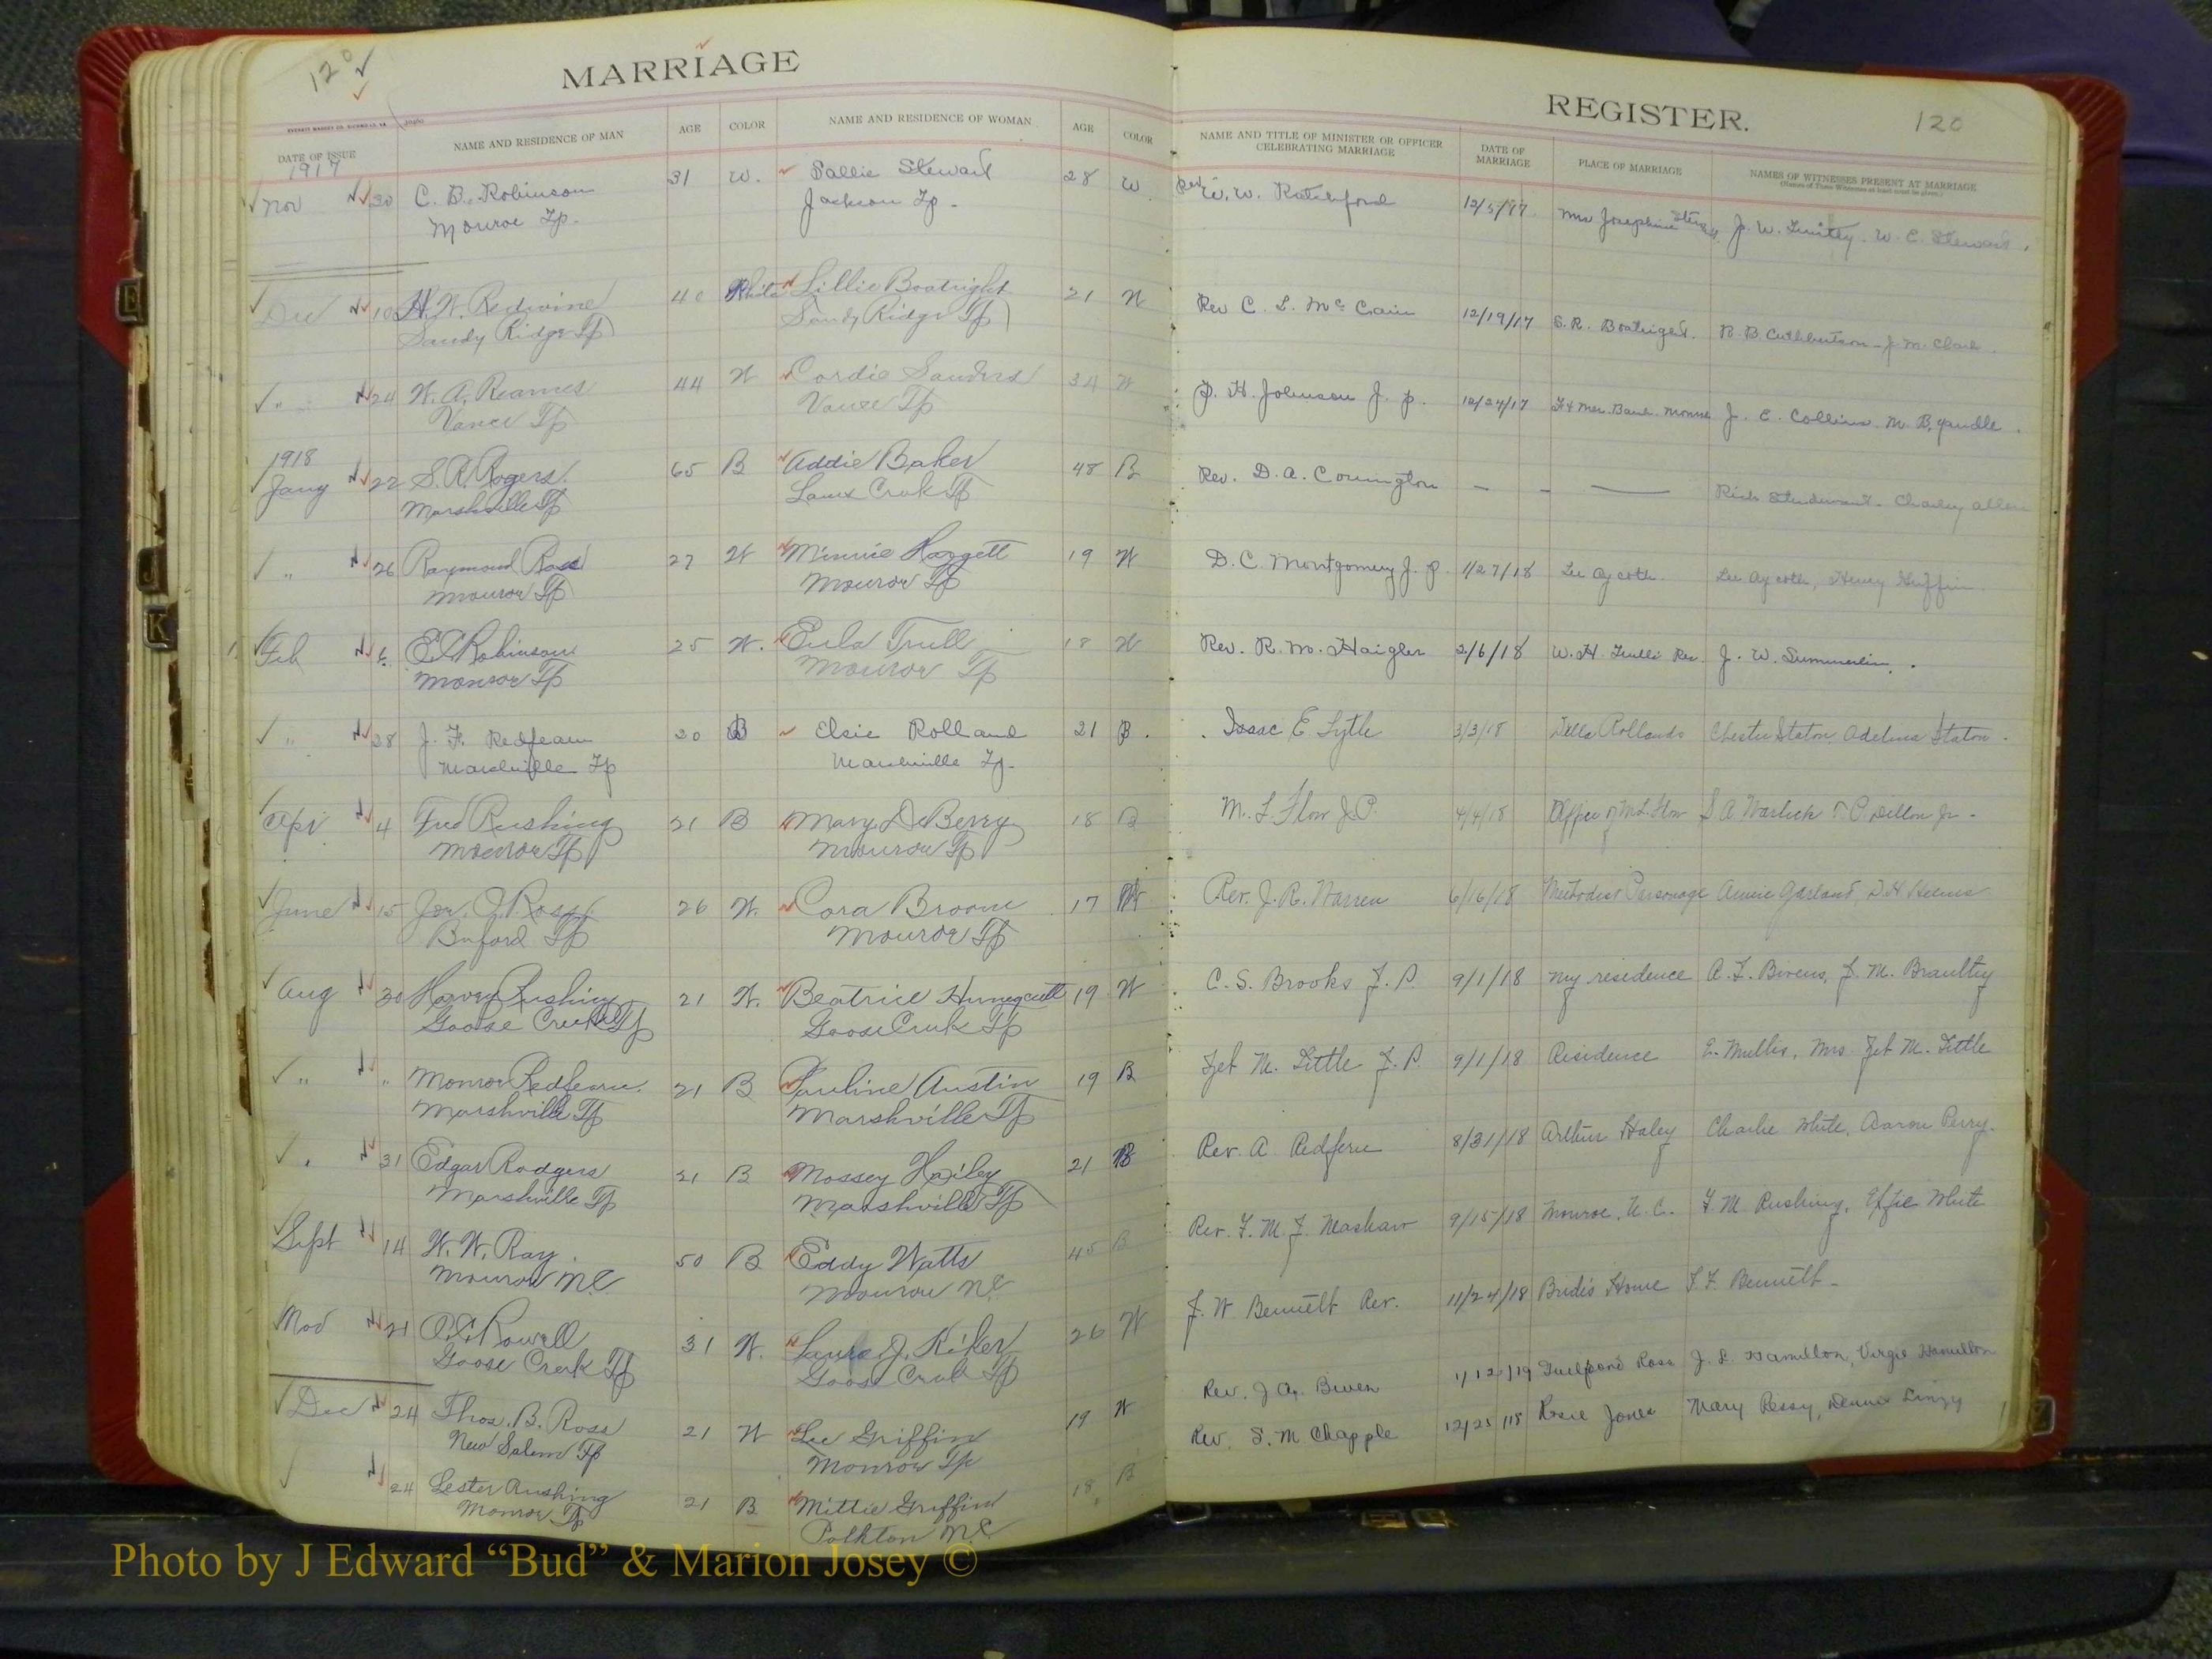 120
MARRIAGE
REGISTER.
120
DATE OF ISSUE
NAME AND RESIDENCE OF MAN
AGE
COLOR
NAME AND RESIDENCE OF WOMAN
AGE
COLOR
NAME AND TITLE OF MINISTER OR OFFICER
CELEBRATING MARRIAGE
DATE OF
MARRIAGE
PLACE OF MARRIAGE
NAMES OF WITNESSES PRESENT AT MARRIAGE
1917
Nov 30 C. B. Robinson 31 W. Sallie Stewart 28 W Rev W. W. Ratchford 12/5/17 Mrs Josephine J. W. W. C. Stewart.
Monroe Tp. Jackson Tp.
Dec 10 H. W. Redwine 40 White Lillie Boatright 21 W Rev C. L. McCain 12/19/17 S. R. Boatright. B. B. Cuthbertson - J. M. Clark.
Sandy Ridge Tp Sandy Ridge Tp
" 24 W. A. Reames 44 W Cordie Sanders 34 W F. H. Johnson J. P. 12/24/17 F & Mer. Bank. Monroe J. E. Collins. M. B. Yandle.
Vance Tp Vance Tp
1918
Jany 22 S. R. Rogers. 65 B Addie Baker 48 B Rev. D. A. Covington — - — Rich Sturdivant - Charley Allen
Marshville Tp Lanes Creek Tp
" 26 Raymond Ross 27 W Minnie Hargett 19 W D. C. Montgomery J. P. 1/27/18 Lee Aycoth. Lee Aycoth, Henry Huffin
Monroe Tp Monroe Tp
Feb 6 E. C. Robinson 25 W. Eula Trull 18 W Rev. R. M. Haigler 2/6/18 W. H. Trulls Res. J. W. Summerlin.
Monroe Tp Monroe Tp
" 28 J. F. Redfearn 20 B Elsie Rolland 21 B. Isaac E Lytle 3/3/18 Della Rollands Chester Staton, Adelina Staton.
Marshville Tp Marshville Tp.
Apr 4 Fred Rushing 21 B Mary DeBerry 18 B M. L. Flow J.P. 4/4/18 Office of M. L. Flow S. A. Warlick T. P. Dillon Jr.
Monroe Tp Monroe Tp
June 15 Jas. O. Ross. 26 W. Cora Broom 17 W Rev. J. R. Warren 6/16/18 Methodist Parsonage Annie Garland, D. H. Helms
Buford Tp Monroe Tp
Aug 30 Harvey Rushing 21 W. Beatrice Hunneycutt 19 W C. S. Brooks J. P. 9/1/18 My residence A. F. Bivens, J. M. Brantley
Goose Creek Tp Goose Creek Tp
" " Monroe Redfearn. 21 B Pauline Austin 19 B Zeb M. Little J. P. 9/1/18 Residence E. Mullis, Mrs Zeb M. Little
Marshville Tp Marshville Tp
" 31 Edgar Rodgers 21 B Mossey Hailey 21 B Rev. A. Redfern 8/31/18 Arthur Haley Charlie White, Aaron Perry.
Marshville Tp Marshville Tp
Sept 14 W. W. Ray. 50 B Eddy Watts 45 B Rev. F. M. J. Mashaw 9/15/18 Monroe, N. C. F. M. Rushing, Effie White
Monroe NC Monroe NC
Nov 21 Rowell 31 W. Laura J. Kiker 26 W J. W Bennett Rev. 11/24/18 Bride's Home Bennett
Goose Creek Tp Goose Creek Tp
Dec 24 Thos. B. Ross 21 W Lee Griffin 19 W Rev. J. A. Biven 1/12/19 Ross J. L. Hamilton, Virgie Hamilton
New Salem Tp Monroe Tp
24 Lester Rushing 21 B Mittie Griffin 18 B Rev. S. M Chapple 12/25/18 Rosie Jones Mary Dennis Linzy
Monroe Tp Polkton N.C.
E
J
K
Photo by J Edward “Bud” & Marion Josey ©